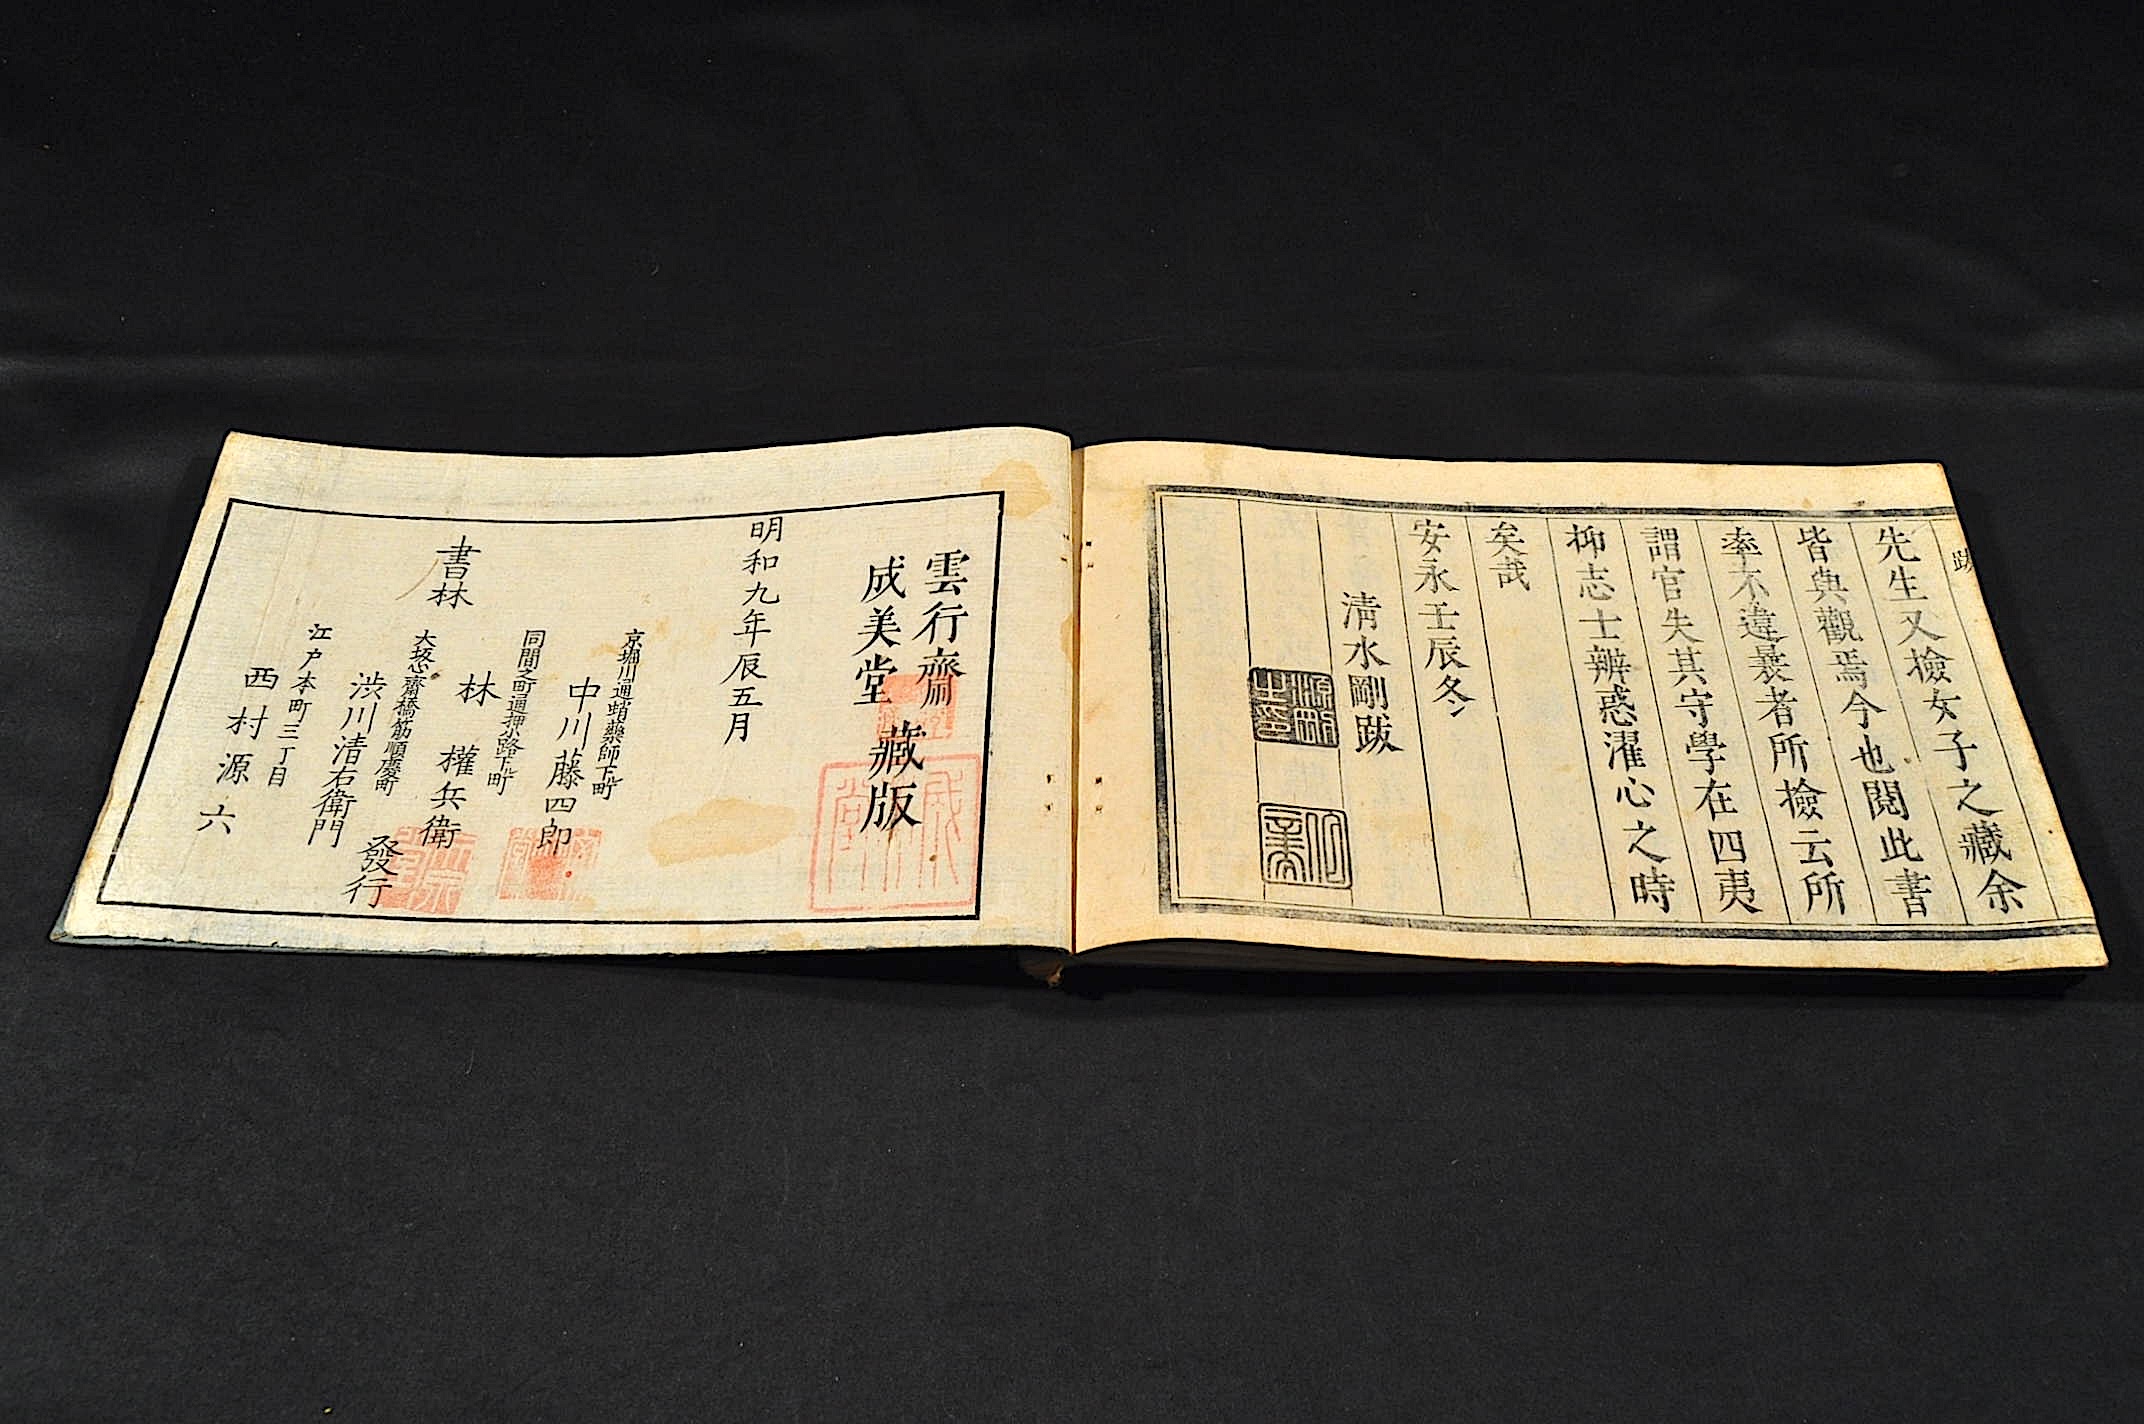 跋
先生又撿女子之藏余
皆與觀焉今也閱此書
率不違曩者所撿云所
謂官失其守學在四夷
抑志士辨惑濯心之時
矣哉
安永壬辰冬
清水剛跋
雲行齋
成美堂
藏版
明和九年辰五月
京堀川通蛸藥師下ル町
中川藤四郎
同間之町通押小路下ル町
林權兵衛
書林
大坂心齋橋筋順慶町
渋川清右衛門
發行
江戸本町三丁目
西村源六